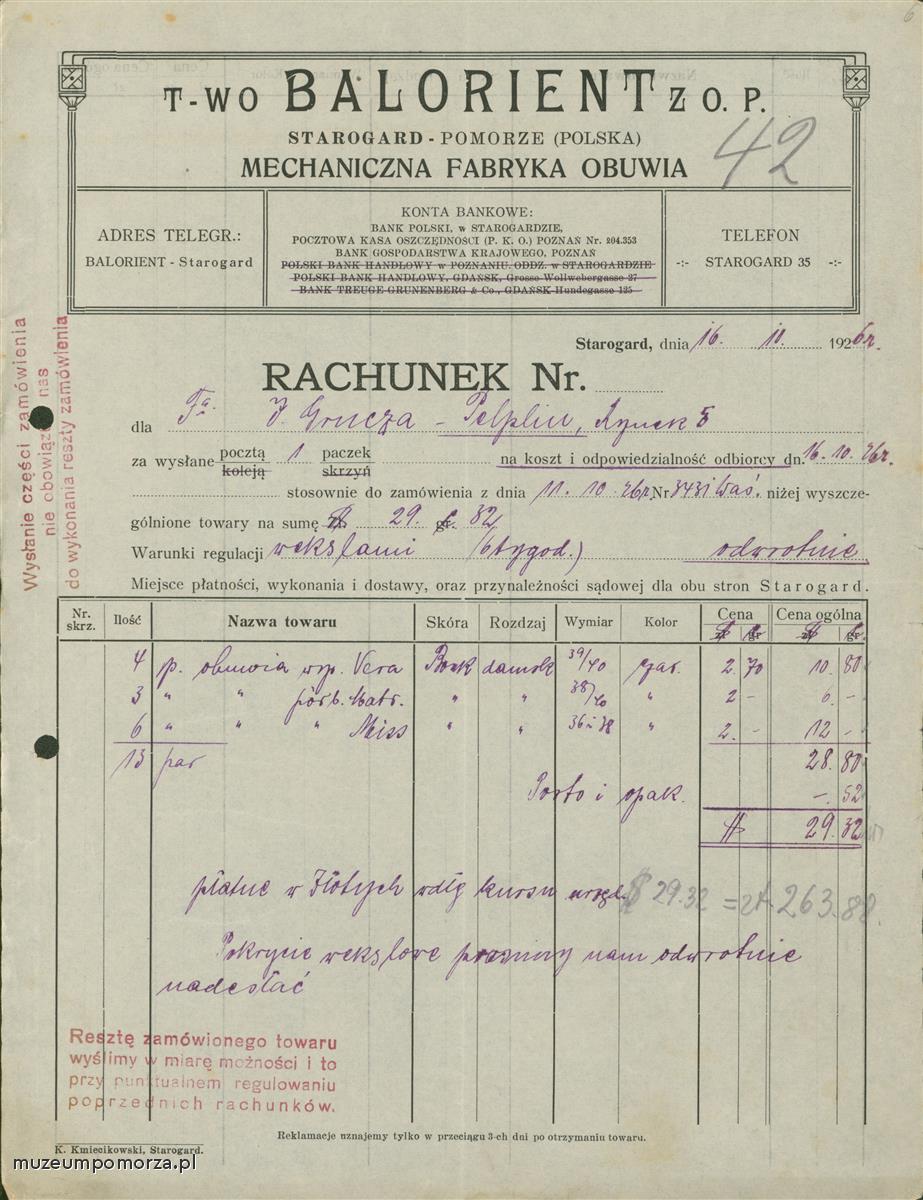 6
T-WO BALORIENT Z O. P.
STAROGARD - POMORZE (POLSKA)
MECHANICZNA FABRYKA OBUWIA
42
ADRES TELEGR.:
BALORIENT - Starogard
KONTA BANKOWE:
BANK POLSKI, w STAROGARDZIE,
POCZTOWA KASA OSZCZĘDNOŚCI (P. K. O.) POZNAŃ Nr. 204.353
BANK GOSPODARSTWA KRAJOWEGO, POZNAŃ
POLSKI BANK HANDLOWY w POZNANIU. ODDZ. w STAROGARDZIE
POLSKI BANK HANDLOWY, GDAŃSK, Grosse Wollwebergasse 27
BANK TREUGE GRUNENBERG & Co., GDAŃSK Hundegasse 125
TELEFON
-:- STAROGARD 35 -:-
Wysłanie części zamówienia
nie obowiązuje nas
do wykonania reszty zamówienia
Starogard, dnia 16. 10. 1926r.
RACHUNEK Nr.
dla Fa. J. Grucza - Pelplin, Rynek 5
za wysłane pocztą koleją 1 paczek skrzyń na koszt i odpowiedzialność odbiorcy dn. 16.10.26r.
stosownie do zamówienia z dnia 11. 10. 26r. Nr 3431 Waś. niżej wyszcze-
gólnione towary na sumę zł. 29. gr. 32/
Warunki regulacji wekslami (6 tygod.) odwrotnie
Miejsce płatności, wykonania i dostawy, oraz przynależności sądowej dla obu stron Starogard.
Nr. skrz. Ilość Nazwa towaru Skóra Rozdzaj Wymiar Kolor Cena zł gr Cena ogólna zł gr.
4 p. obuwia wzp. Vera damsk 39/40 2. 70 10. 80
3 " " " 38/40 " 2 - 6. -
6 " " " Miss " " 36 i 38 " 2. - 12 -
13 par 28. 80
Porto i opak. -. 52
$ 29. 32
płatne w Złotych wdłg kursu urzęd. $ 29.32 = zł. 263.88.
Pokrycie wekslowe prosimy nam odwrotnie
nadesłać
Resztę zamówionego towaru
wyślimy w miarę możności i to
przy punktualnem regulowaniu
poprzednich rachunków.
Reklamacje uznajemy tylko w przeciągu 3-ch dni po otrzymaniu towaru.
K. Kmiecikowski, Starogard.
muzeumpomorza.pl